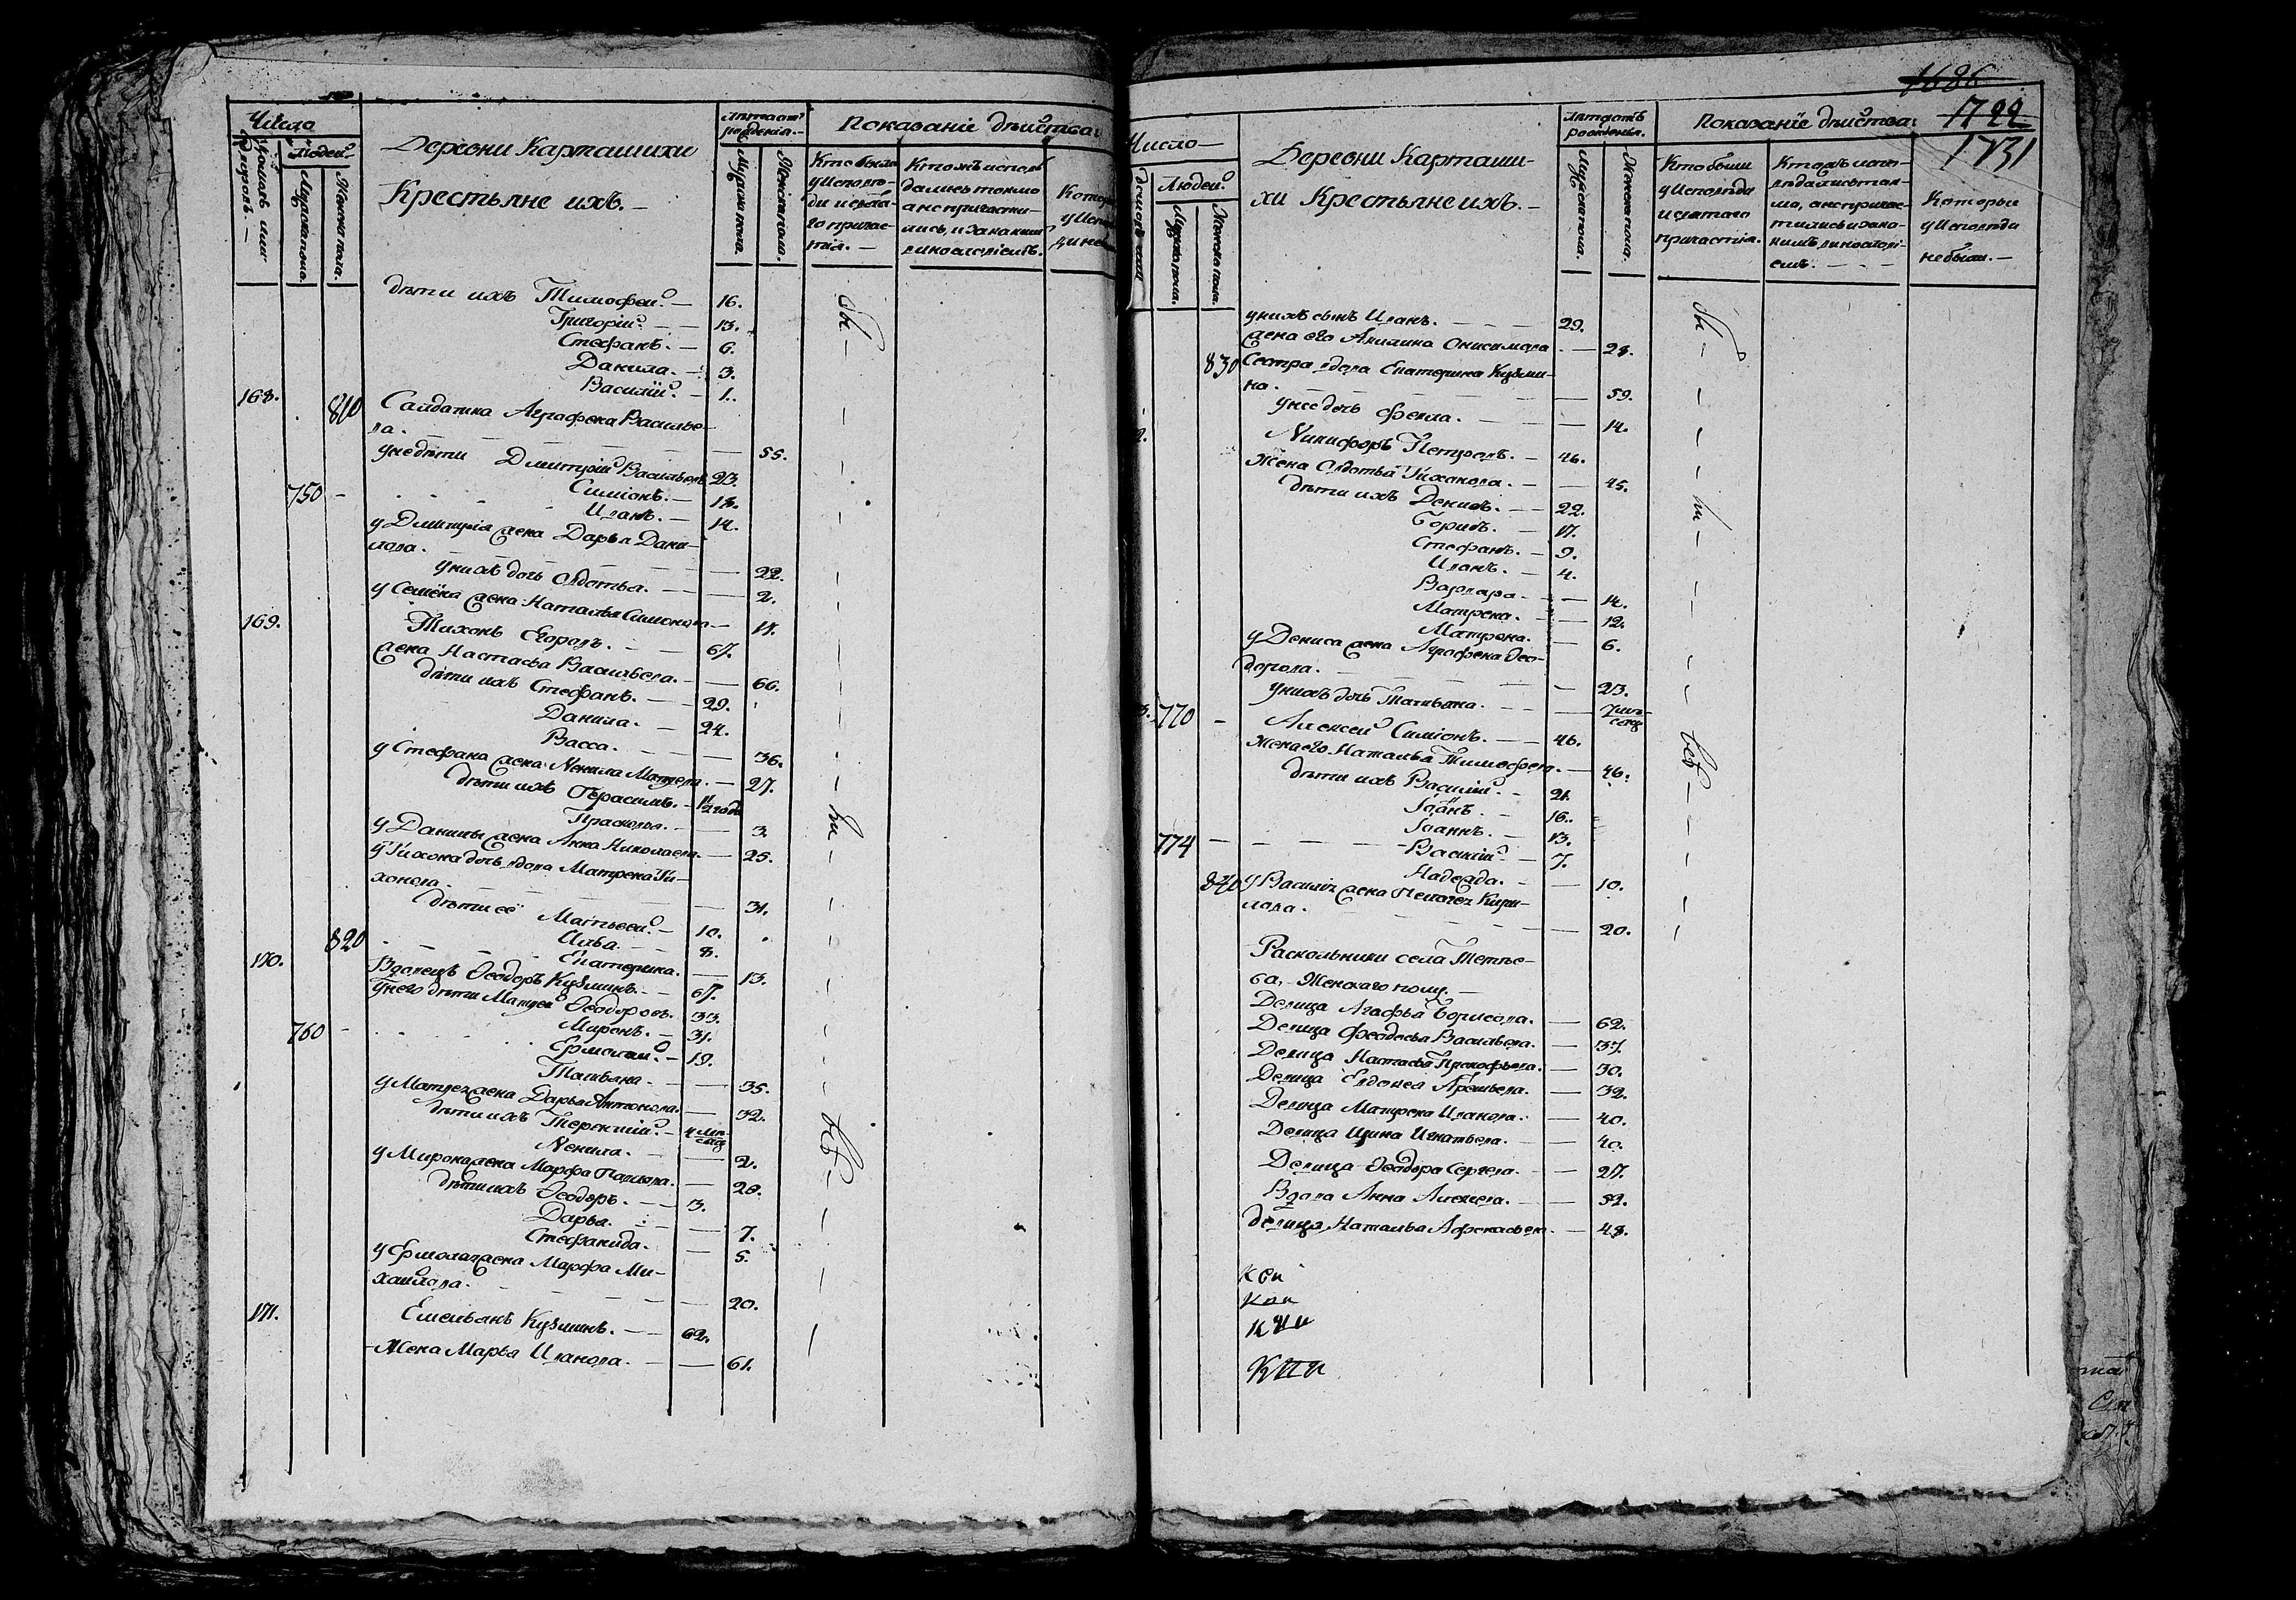 Число
Людей
Мужска пола.
Женска пола.
Деревни Карташихи
Крестьяне ихъ. —
Лѣта отъ рожденія. —
Мужска пола.
Женска пола.
Показаніе дѣйства
Кто были
у Исповѣ-
ди и свята-
го причас-
тія. —
Кто жъ исповѣ
дались токмо
а не причасти-
лись, и за какимъ
винословіемъ.
дѣти ихъ Тимофей. — 16.
Григорій. — — 13.
Стефанъ. — 6.
Данила. — 3.
Василій. — 1.
168. 810 Салдатка Аграфена Василье-
ва. — — — 55.
у нее дѣти Дмитрій Васильевъ 23.
750 — Симіонъ. — 18.
Иванъ. — 14.
у Дмитрія жена Дарья Дани-
лова. — — — 22.
у нихъ дочь Овдотья. — — 2.
у Семёна жена Наталья Симонова — 17.
169. Тихонъ Егоровъ. — — 67.
жена Настасья Васильева. — — 66.
дѣти ихъ Стефанъ. — — 29.
Данила. — 24.
Васса. — — 36.
у Стефана жена Ненила Матвева. — 27.
дѣти ихъ Герасимъ. — 1/2 года
Прасковья. — — 3.
у Данилы жена Анна Николаева. — 25.
у Тихона дочь вдова Матрена Ти-
хонова. — — — 31.
дѣти ее Матвей. — 10.
Илья. — — 8.
820 Екатерина. — 13.
170. Вдовецъ Ѳеодоръ Кузминъ. — 67.
у него дѣти Матвей Ѳеодоровъ. 33.
760 — Миронъ. — 31.
Ермолай. — 19.
Татьяна. — — 35.
у Матвея жена Дарья Антонова. — 32.
дѣти ихъ Терентій. — 4 мѣсяц
Ненила. — — 2.
у Мирона жена Марфа Павлова. — 28.
дѣти ихъ Ѳеодоръ. — — 3.
Дарья. — — 7.
Стефанида. — 5.
у Ермолая жена Марфа Ми-
хайлова. — — — 20.
171. Емельянъ Кузминъ. — — 62.
Жена Марья Иванова. — — 61.
1686
1722
1731
Число —
Людей
Мужска пола.
Женска пола.
Деревни Карташи-
хи Крестьяне ихъ. —
Лѣта отъ рожденья.
Мужска пола.
Женска пола.
Показаніе дѣйства
Кто были
у Исповѣди
и святаго
причастія.
Кто жъ испо-
вѣдались ток-
мо, а не причас-
тились и за ка-
кимъ винослові-
емъ. — —
Которые
у Исповѣди
не были. —
у нихъ сынъ Иванъ. — — — 29.
жена его Акилина Онисимова — — 28.
830 Сестра вдова Екатерина Кузми-
на. — — — 59.
у нее дочь Фекла. — — 14.
Никифоръ Петровъ. — 46.
Жена Овдотья Тихонова. — — 45.
дѣти ихъ Денисъ. — — 22.
Борисъ. — 17.
Стефанъ. — 9.
Иванъ. — 4.
Варвара. — — 14.
Матрена. — — 12.
Матрона. — — 6.
у Дениса жена Аграфена Ѳео-
дорова. — — — 23.
у нихъ дочь Татьяна. — — — 7 мѣсяц
770 — Алексей Симіонъ. — — 46.
Жена его Наталья Тимофеева. — — 46.
дѣти ихъ Василій. — — 21.
Іоаннъ. — 16.
Іоаннъ. — 13.
774 — — — — Василій — 7.
Надежда. — — 10.
840 у Василія жена Пелагея Кири-
лова. — — — 20.
Раскольники села Тетѣе-
ва, Женскаго полу. —
Девица Агафья Борисова. — — 62.
Девица Феодосья Васильева. — — 37.
Девица Настасья Прокофьева. — 30.
Девица Евдокея Артемьева. — — 32.
Девица Матрена Иванова. — — 40.
Девица Ирина Игнатьева. — — 40.
Девица Ѳеодора Сергеева. — — 27.
Вдова Анна Алексева. — — 52.
Девица Наталья Афонасьева. — 48.